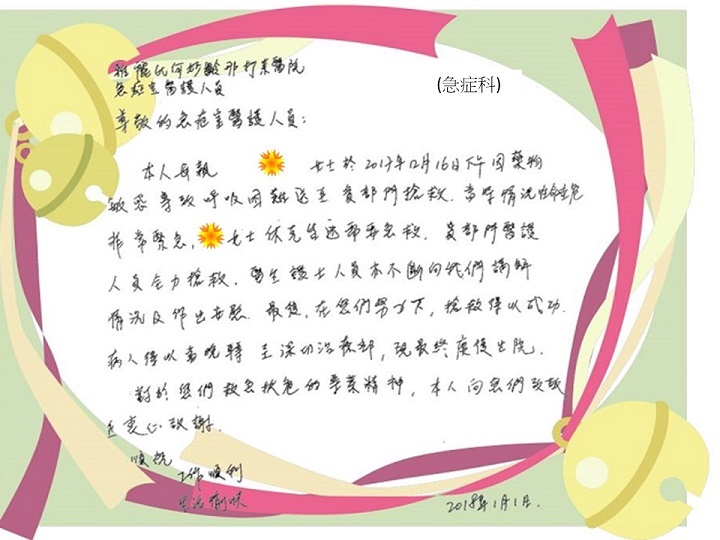 雅麗氏何妙齡那打素醫院
急症室醫護人員
(急症科)
尊敬的急症室醫護人員：
本人母親 女士於2017年12月16日下午因藥物
敏感導致呼吸困難送至貴部門搶救．當時情況
非常緊急， 女士休克生 急救．貴部門醫護
人員全力搶救．醫生護士人員亦不斷向我們講解
情況及作出安慰．最後，在您們努力下，搶救得以成功．
病人得以當晚轉至深切治療部，現最終康復出院．
對於您們救急扶危的專業精神，本人向您們致
衷心致謝．
順祝
工作順利
生活愉快
2018年1月1日．